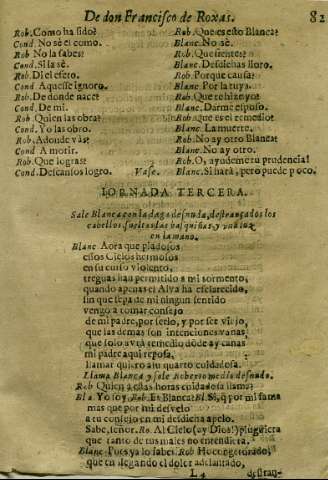 De don Francisco de Roxas. 82
Rob. Como ha sido?
Cond. No sè el como.
Rob. No la sabes?
Cond. Si la sè.
Rob. Di el efeto.
Cond. Aquesse ignoro.
Rob. De donde nace?
Cond. De mi.
Rob. Quien las obra?
Cond. Yo las obro.
Rob. Adonde vàs?
Cond. A morir.
Rob. Que logras?
Cond. Descansos logro. Vase.
Rob. Que es esto Blanca?
Blanc. No sè.
Rob. Que sientes?
Blanc. Desdichas lloro.
Rob. Por que causa?
Blanc. Por la tuya.
Rob. Que te hizo yo?
Blanc. Darme esposo.
Rob. Que es el remedio?
Blanc. La muerte.
Rob. No ay otro Blanca?
Blanc. No ay otro.
Rob. O, ayudeme tu prudencia!
Blanc. Si harà, pero puede poco.
IORNADA TERCERA.
Sale Blanca con la daga desnuda, destrançados los
cabellos, sueltas las basquiñas, y una luz
en la mano.
Blanc. Aora que piadosos
essos Cielos hermosos
en su curso violento,
treguas han permitido a mi tormento,
quando apenas el Alva ha esclarecido,
sin que sepa de mi ningun sentido
vengo a tomar consejo
de mi padre, por serlo, y por ser viejo,
que las demàs son intenciones vanas,
que solo avrà remedio dòde ay canas
mi padre aqui reposa,
llamar quiero a su quarto cuidadosa.
Llama Blanca, y sale Roberto medio desnudo.
Rob. Quien a estas horas cuidadosa llama?
Bla. Yo soy. Rob. Es Blanca? Bl. Si, q por mi fama
mas que por mi desvelo
a tu consejo en mi desdicha apelo.
Sabe, señor. Ro. Al Cielo (ay Dios!) pluguiera
que tanto de tus males no entendiera.
Blanc. Pues ya lo sabes. Rob.
que en llegando el dolor adelantado,
L 4 destran-